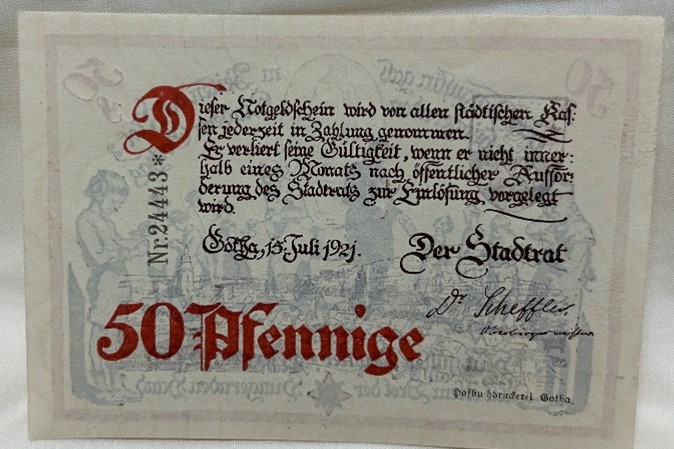 Dieser Notgeldschein wird von allen städtischen Kas-
sen jederzeit in Zahlung genommen.
Er verliert seine Gültigkeit, wenn er nicht inner-
halb eines Monats nach öffentlicher Auffor-
derung des Stadtrats zur Einlösung vorgelegt
wird.
Nr. 24443*
Gotha, 15. Juli 1921. Der Stadtrat
Dr Scheffler
Oberbürgermeister
50 Pfennige
Hofbuchdruckerei Gotha.